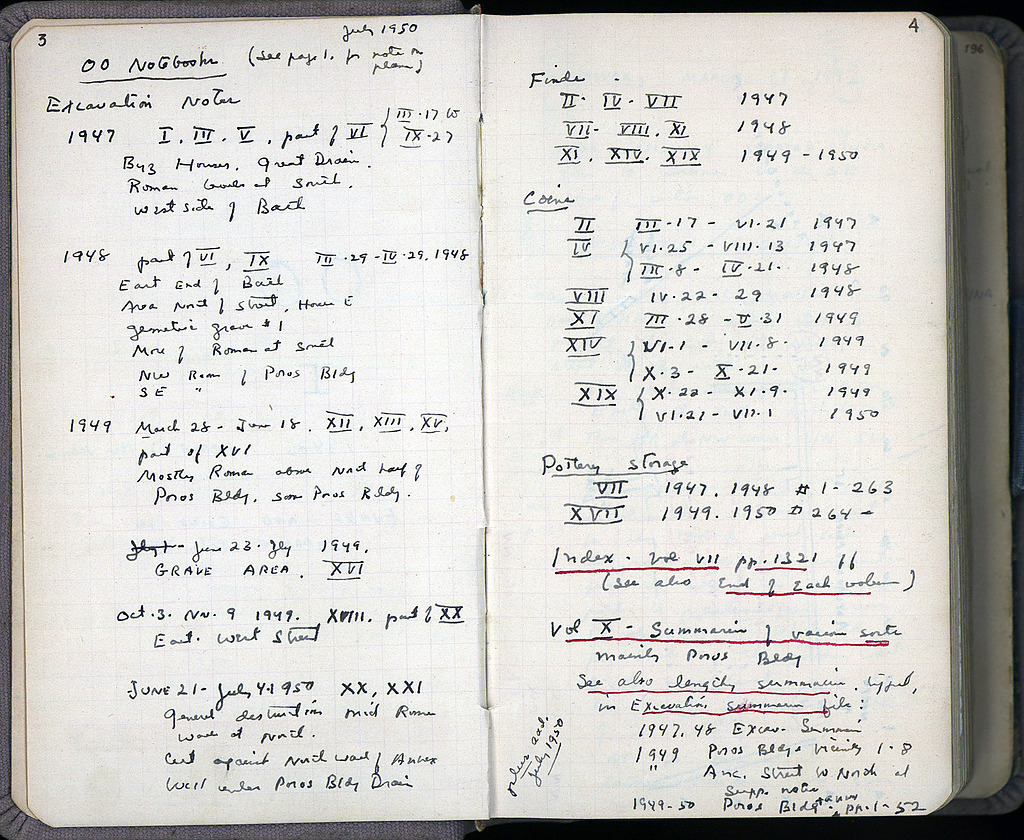 3
July 1950
OO Notebooks (See page 1. for note on plans)
Excavation Notes
1947 I, III, V, part of VI { III·17 to
IX·27
Byz Houses, Great Drain.
Roman at South.
West side of Bath
1948 part of VI, IX III·29 - IV·29, 1948
East End of Bath
Area North of Street, House E
Geometric grave #1
More of Roman at South
NW Room of Poros Bldg
SE "
1949 March 28 - June 18. XII, XIII, XV,
part of XVI
Mostly Roman above North half of
Poros Bldg. some Poros Bldg.
June 23 - Jly 1949.
GRAVE AREA. XVI
Oct. 3. Nv. 9 1949. XVIII. part of XX
East. West Street
JUNE 21 - July 4·1950 XX, XXI
General destruction mid Roman
at North.
Cut against North wall of Annex
Well under Poros Bldg Drain
4
Finds
II· IV· VII 1947
VII- VIII, XI 1948
XI. XIV. XIX 1949 - 1950
Coins
II III·17 - VI·21 1947
IV { VI·25 - VIII·13 1947
III·8 - IV·21· 1948
VIII IV·22 - 29 1948
XI III·28 - V·31 1949
XIV { VI·1 - VII·8· 1949
X·3 - X·21· 1949
XIX { X·22 - XI·9· 1949
VI·21 - VII·1 1950
Pottery Storage
VII 1947. 1948 # 1 - 263
XVII 1949. 1950 # 264 -
Index - Vol VII pp. 1321 ff
(See also End of Each volume)
Vol X - Summaries of various sorts
mainly Poros Bldg
See also lengthy summaries, typed,
in Excavation summaries file:
1947, 48 Excav. Summaries
1949 Poros Bldg & Vicinity 1-8
" Anc. Street to North of
Supp. notes
1949-50 Poros Bldg & Annex pp. 1-52
July 1950
196